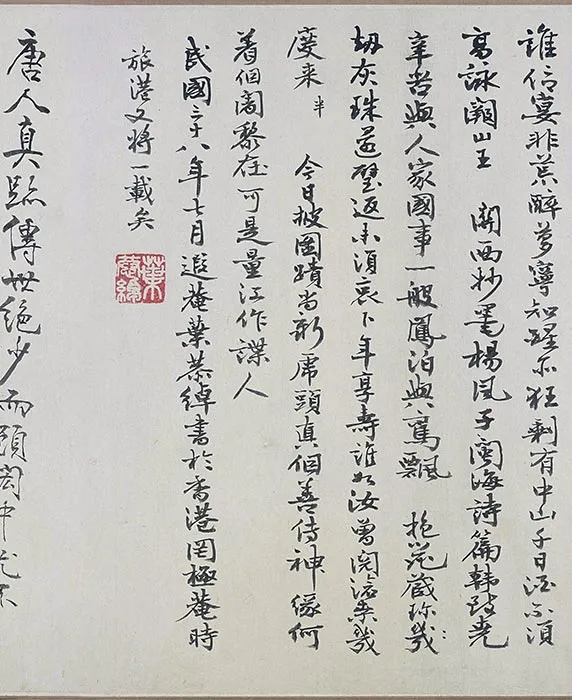 誰信宴非荒醉夢寧知醒亦狂剩有中山千日酒不須
高詠闕山王 關西妙墨楊風子閩海詩篇韓致堯
辛苦與人家國事一般鳳泊與鸞飄 抱甕藏珍幾
劫灰珠還璧返未須哀卜年享壽誰如汝曾閱滄桑幾
度来半 今日披圖蹟尚新虎頭真個善傳神緣何
着個闍黎在可是量江作諜人
民國三十八年七月遐菴葉恭綽書於香港罔極菴時
旅港又将一載矣
葉恭綽
唐人真跡傳世絕少而顧閎中尤不